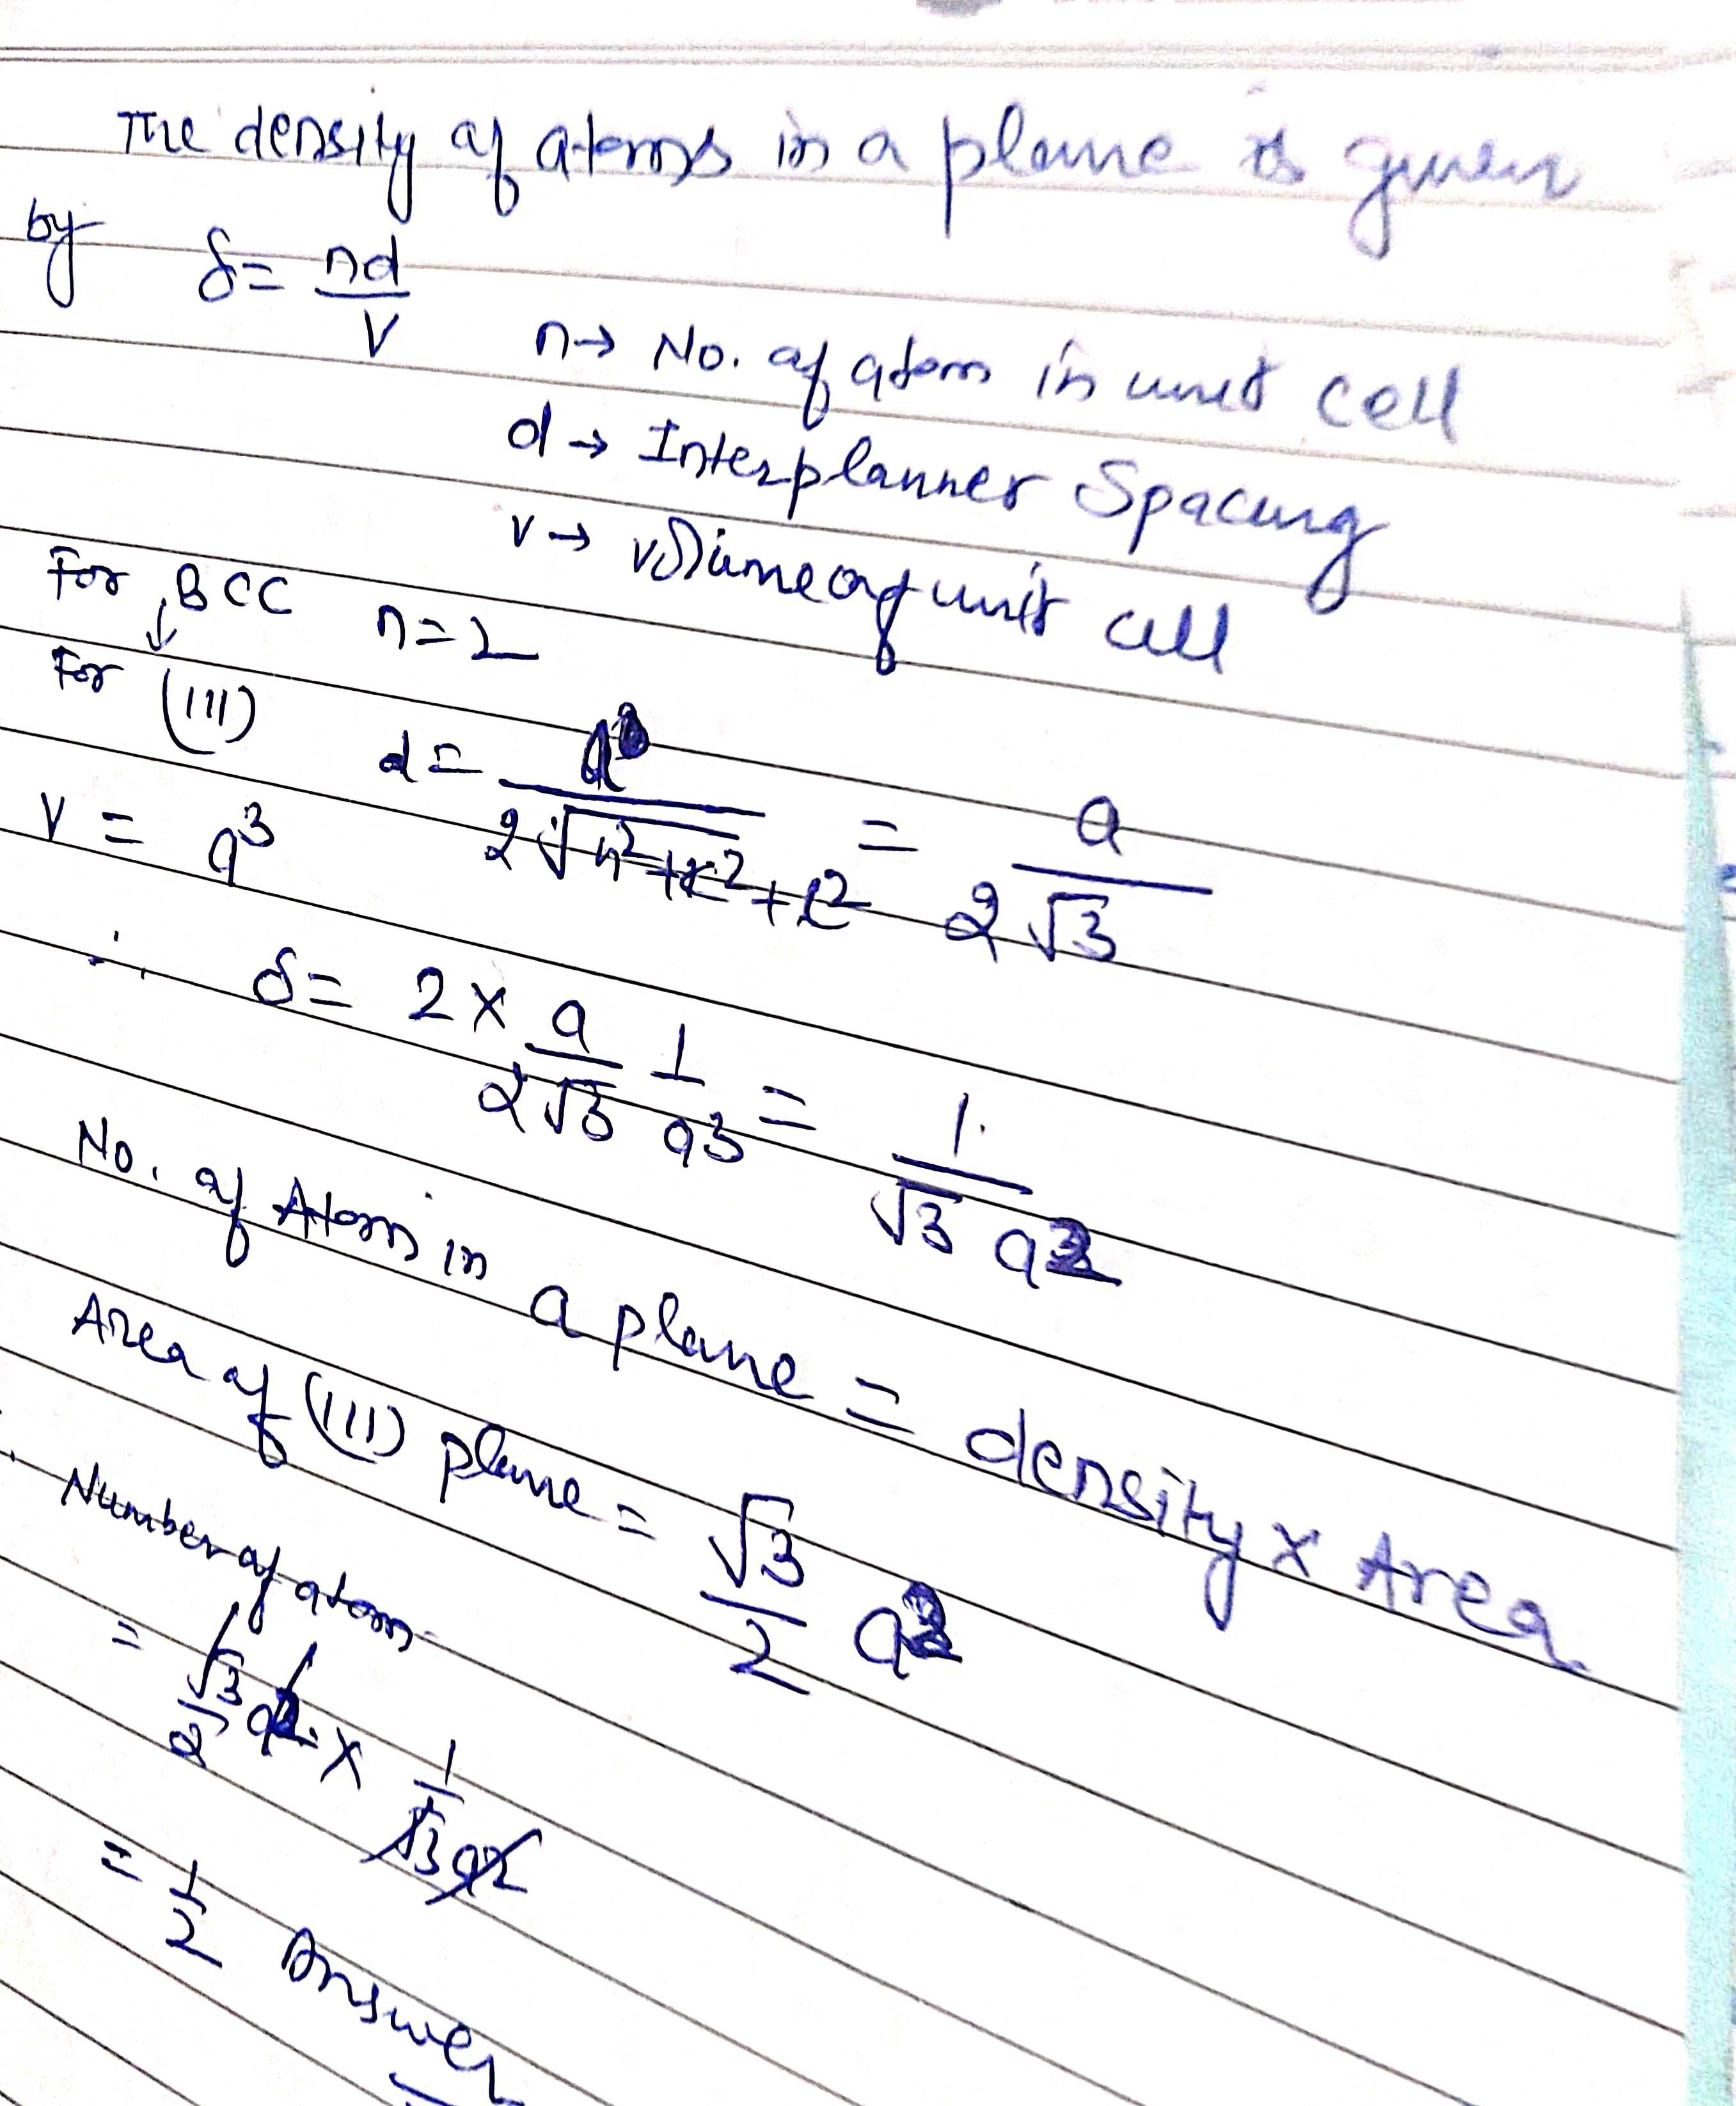 The density of atoms in a plane is given
by δ = nd/V
n → No. of atom in unit cell
d → Interplanner Spacing
v → volume of unit cell
For BCC n = 2
↓
For (111)
d = a/2√h²+k²+l² = a/2√3
V = a³
∴ δ = 2 × a/2√3 1/a3 = 1/√3 a2
No. of Atom in a plane = density × Area
Area of (111) plane = √3/2 a2
Number of atom
= √3/2 a2 × 1/√3 a2
= 1/2 Answer